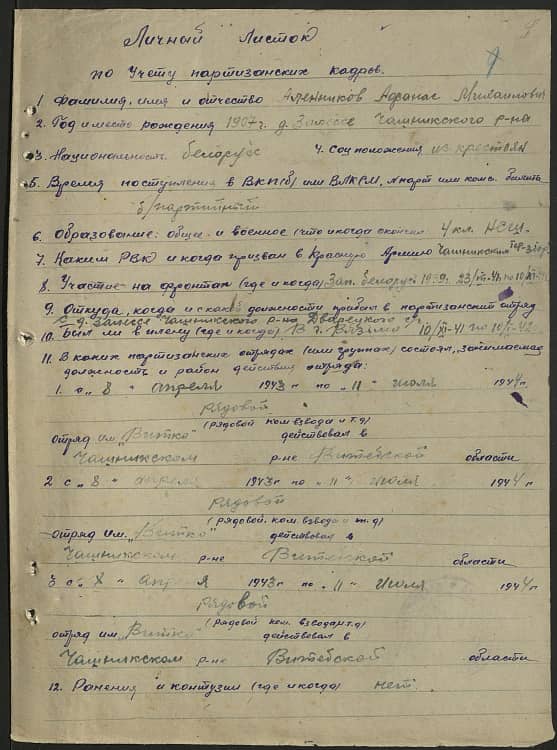 Личный Листок
по Учету партизанских кадров.
1. Фамилия, имя и отчество Аленников Афанас Михаилович
2. Год и место рождения 1907 г. д. Заполье Чашникского р-на
3. Национальность беларус 4. Соц положения из крестьян
5. Время поступления в ВКП(б) или ВЛКСМ, № парт или комс. билета
б/партийный
6. Образование: общее и военное (что и когда окончил 4 кл. НСШ.
7. Каким РВК и когда призван в Красную Армию Чашникским
8. Участие на фронтах (где и когда) Зап. беларусь 1939.
9. Откуда, когда и с какой должности прибыл в партизанский отряд
с д. Чашникского р-на
10. Был ли в плену (где и когда) В г. Вязьма 10/XI-41 по 10/
11. В каких партизанских отрядах (или группах) состоял, занимаемая
должность и район действия отряда:
1. с „ 8 “ апреля 1943 г по „ 11 “ июля 1944 г.
рядовой
(рядовой ком взвода и т. д)
отряд им. „Витко“ действовал в
Чашникском р-не Витебской области
2 с „ 8 “ апреля 1943 г по „ 11 “ июля 1944 г
Рядовой
(рядовой. ком. взвода и т. д)
отряд им. „Витко“ действовал в
Чашникском р-не Витебской области
3 с „ 8 “ апреля 1943 г по „ 11 “ июля 1944 г.
Рядовой
(рядовой ком. взвода и т. д)
отряд им „Витко“ действовал в
Чашникском р-не Витебской области
12. Ранения и контузии (где и когда) нет.